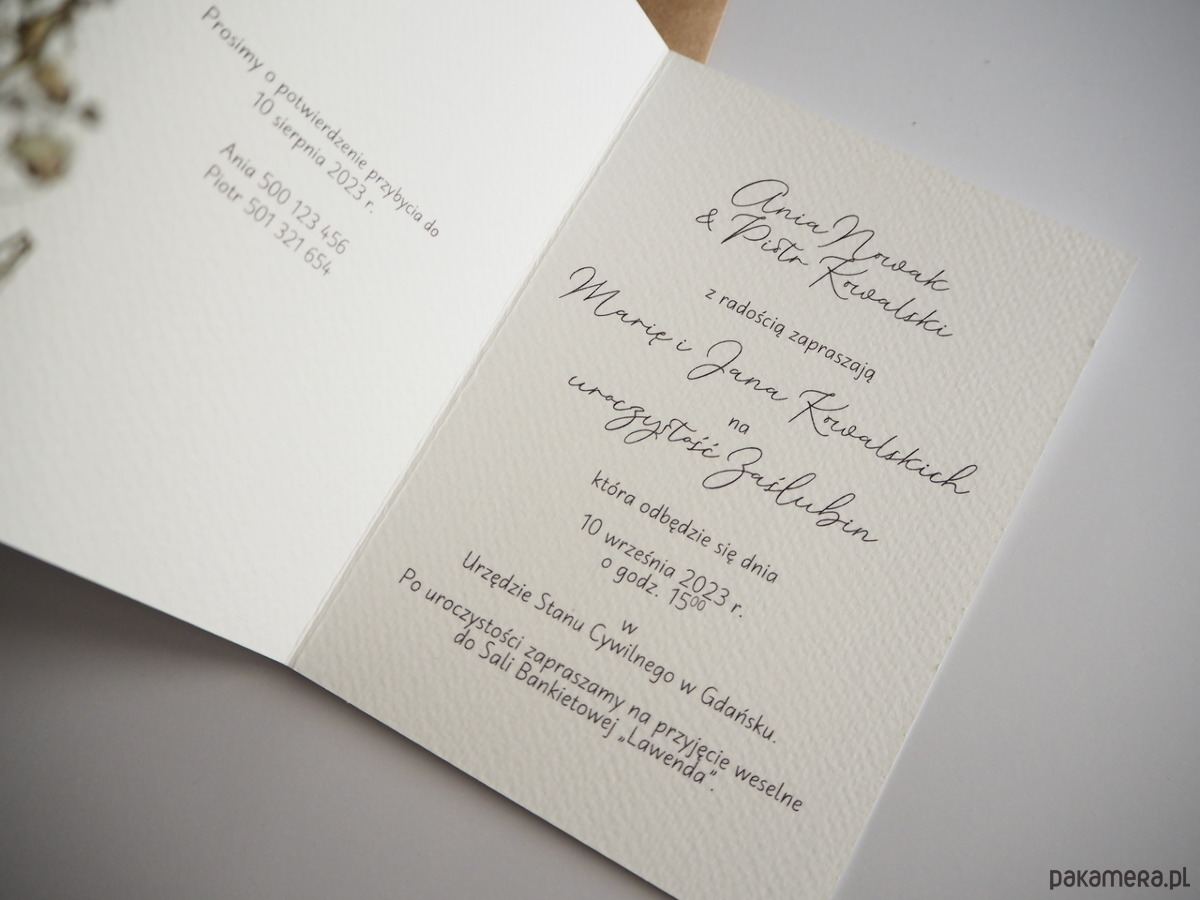 Prosimy o potwierdzenie przybycia do
10 sierpnia 2023 r.
Ania 500 123 456
Piotr 501 321 654
Ania Nowak
& Piotr Kowalski
z radością zapraszają
Marię i Jana Kowalskich
na
uroczystość Zaślubin
która odbędzie się dnia
10 września 2023 r.
o godz. 15⁰⁰
w
Urzędzie Stanu Cywilnego w Gdańsku.
Po uroczystości zapraszamy na przyjęcie weselne
do Sali Bankietowej „Lawenda”.
pakamera.pl